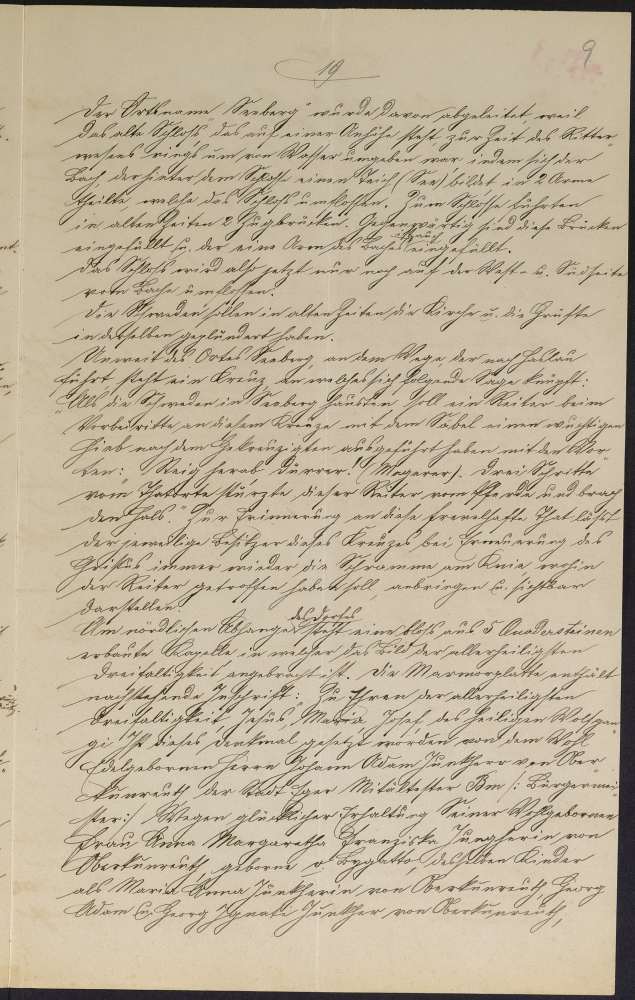 9
19
Der Ortsname „Seeberg" wurde davon abgeleitet, weil
das alte Schloß, das auf einer Anhöhe steht, zur Zeit des Ritter-
wesens rings um von Wasser umgeben war, indem sich der
Bach, der hinter dem Schloße einen Teich (See) bildet in 2 Arme
theilte, welche das Schloß umfloßen. Zum Schloße führten
in alten Zeiten 2 Zugbrücken. Gegenwärtig sind diese Brücken
eingefüllt u. der eine Arm des Baches eingefüllt.
Das Schloß wird also jetzt nur noch auf der West- u. Südseite
vom Bache umflossen.
Die Schweden sollen in alten Zeiten die Kirche u. die Grüfte
in derselben geplündert haben.
Unweit des Ortes Seeberg, an dem Wege, der nach Haslau
führt, steht ein Kreuz, an welches sich folgende Sage knüpft:
"Als die Schweden in Seeberg hausten, soll ein Reiter beim
Vorbeiritte an diesem Kreuze mit dem Säbel einen wuchtigen
Hieb nach dem Gekreuzigten ausgeführt haben mit den Wor-
ten: "Steig herab Dürrer!" (Magerer). Drei Schritte
vom Thatorte stürzte dieser Reiter vom Pferde und brach
den Hals." Zur Erinnerung an diese frevelhafte That läßt
der jeweilige Besitzer dieses Kreuzes bei Erneuerung des
Christus immer wieder die Schramme am Knie, wohin
der Reiter getroffen haben soll, anbringen u. sichtbar
darstellen.
Am nördlichen Abhange des Dorfes steht eine bloß aus 5 Quadersteinen
erbaute Kapelle in welcher das Bild der allerheiligsten
Dreifaltigkeit angebracht ist. Die Marmorplatte enthält
nachstehende Inschrift: "Zu Ehren der allerheiligsten
Dreifaltigkeit, Jesus, Maria, Josef, des heiligen Wolfgan-
gi Ist dieses Denkmal gesetzt worden von dem Wohl
Edelgebornen Herrn Johann Adam Junkherr von Ober-
kunreuth der Stadt Eger Mitältester Bm /: Bürgermei-
ster:/ Wegen glücklicher Erhaltung Seiner Wohlgebornen
Frau Anna Margaretha Franziska Junkherin von
Oberkunreuth, geborne desselben Kinder
als Maria Anna Junkherin von Oberkunreuth Georg
Adam u. Georg Ignatz Junkher von Oberkunreuth,